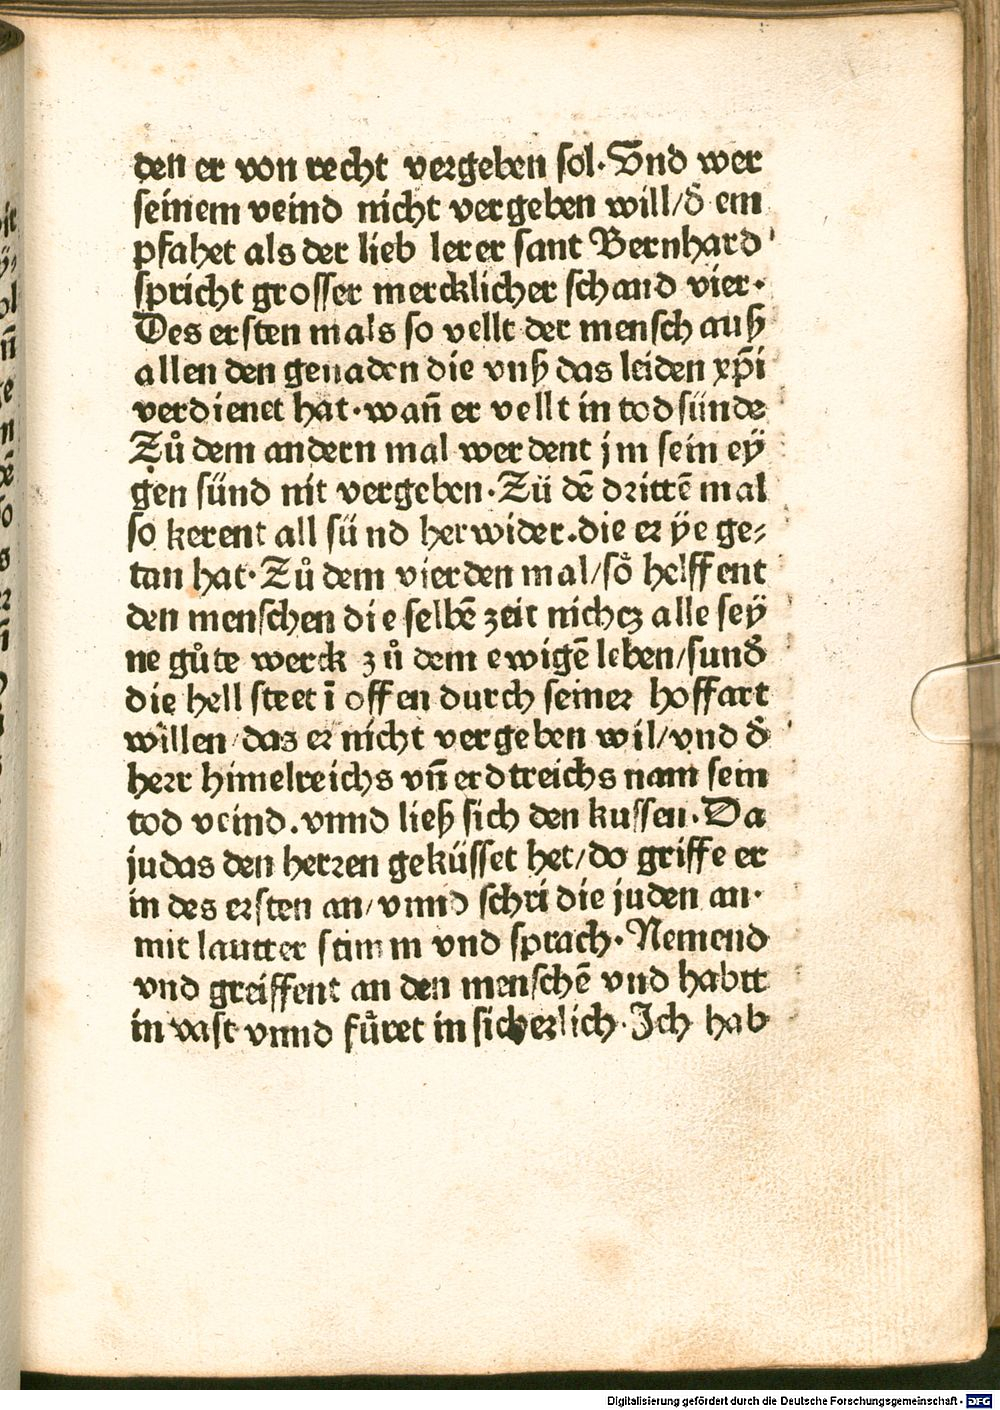 den er von recht vergeben sol. Vnd wer
seinem veind nicht vergeben will/ d̄ em
pfahet als der lieb lerer sant Bernhard
spricht grosser mercklicher schand vier.
Des ersten mals so vellt der mensch auß
allen den genaden die vnß das leiden xp̄i
verdienet hat. wañ er vellt in tod sünde
Zů dem andern mal werdent jm sein ey
gen sünd nit vergeben. Zü dē drittē mal
so kerent all sünd herwider. die er ÿe ge⸗
tan hat. Zů dem vierden mal/ so helffent
den menschen die selbē zeit nichcz alle seÿ
ne gůte werck zů dem ewigē leben/ sund̄
die hell steet ī offen durch seiner hoffart
willen/ das er nicht vergeben wil/ vnd d̄
herr himelreichs vñ erdtreichs nam sein
tod veind. vnnd ließ sich den kussen. Da
judas den herren geküsset het/ do griffe er
in des ersten an/ vnnd schri die juden an.
mit lautter stimm vnd sprach. Nemend
vnd greiffent an den menschē vnd habtt
in vast vnnd fůret in sicherlich. Ich hab
Digitalisierung gefördert durch die Deutsche Forschungsgemeinschaft - DFG